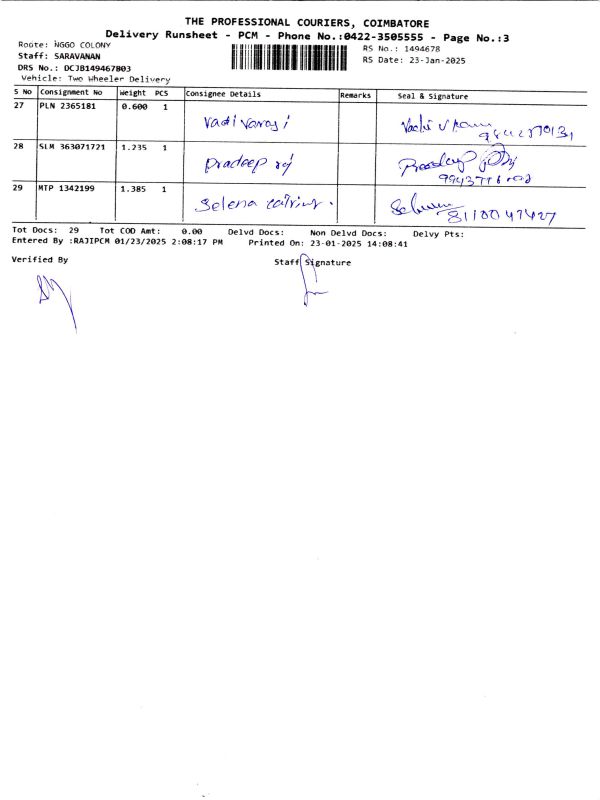 THE PROFESSIONAL COURIERS, COIMBATORE
Delivery Runsheet - PCM - Phone No.:0422-3505555 - Page No.:3
Route: NGGO COLONY
RS No.: 1494678
Staff: SARAVANAN
RS Date: 23-Jan-2025
DRS No.: DCJB149467803
Vehicle: Two Wheeler Delivery
S No Consignment No Weight PCS Consignee Details Remarks Seal & Signature
27 PLN 2365181 0.600 1 Vadivarasi
28 SLM 363071721 1.235 1 Pradeep
29 MTP 1342199 1.385 1 Selena
8110047427
Tot Docs: 29 Tot COD Amt: 0.00 Delvd Docs: Non Delvd Docs: Delvy Pts:
Entered By :RAJIPCM 01/23/2025 2:08:17 PM Printed On: 23-01-2025 14:08:41
Verified By
Staff Signature